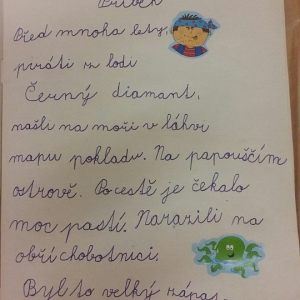 Příběh
Před mnoha lety,
piráti z lodi
Černý diamant,
našli na moři v láhvi
mapu pokladu. Na papouščím
ostrově. Po cestě je čekalo
moc pastí. Narazili na
obří chobotnici.
Byl to velký zápas.